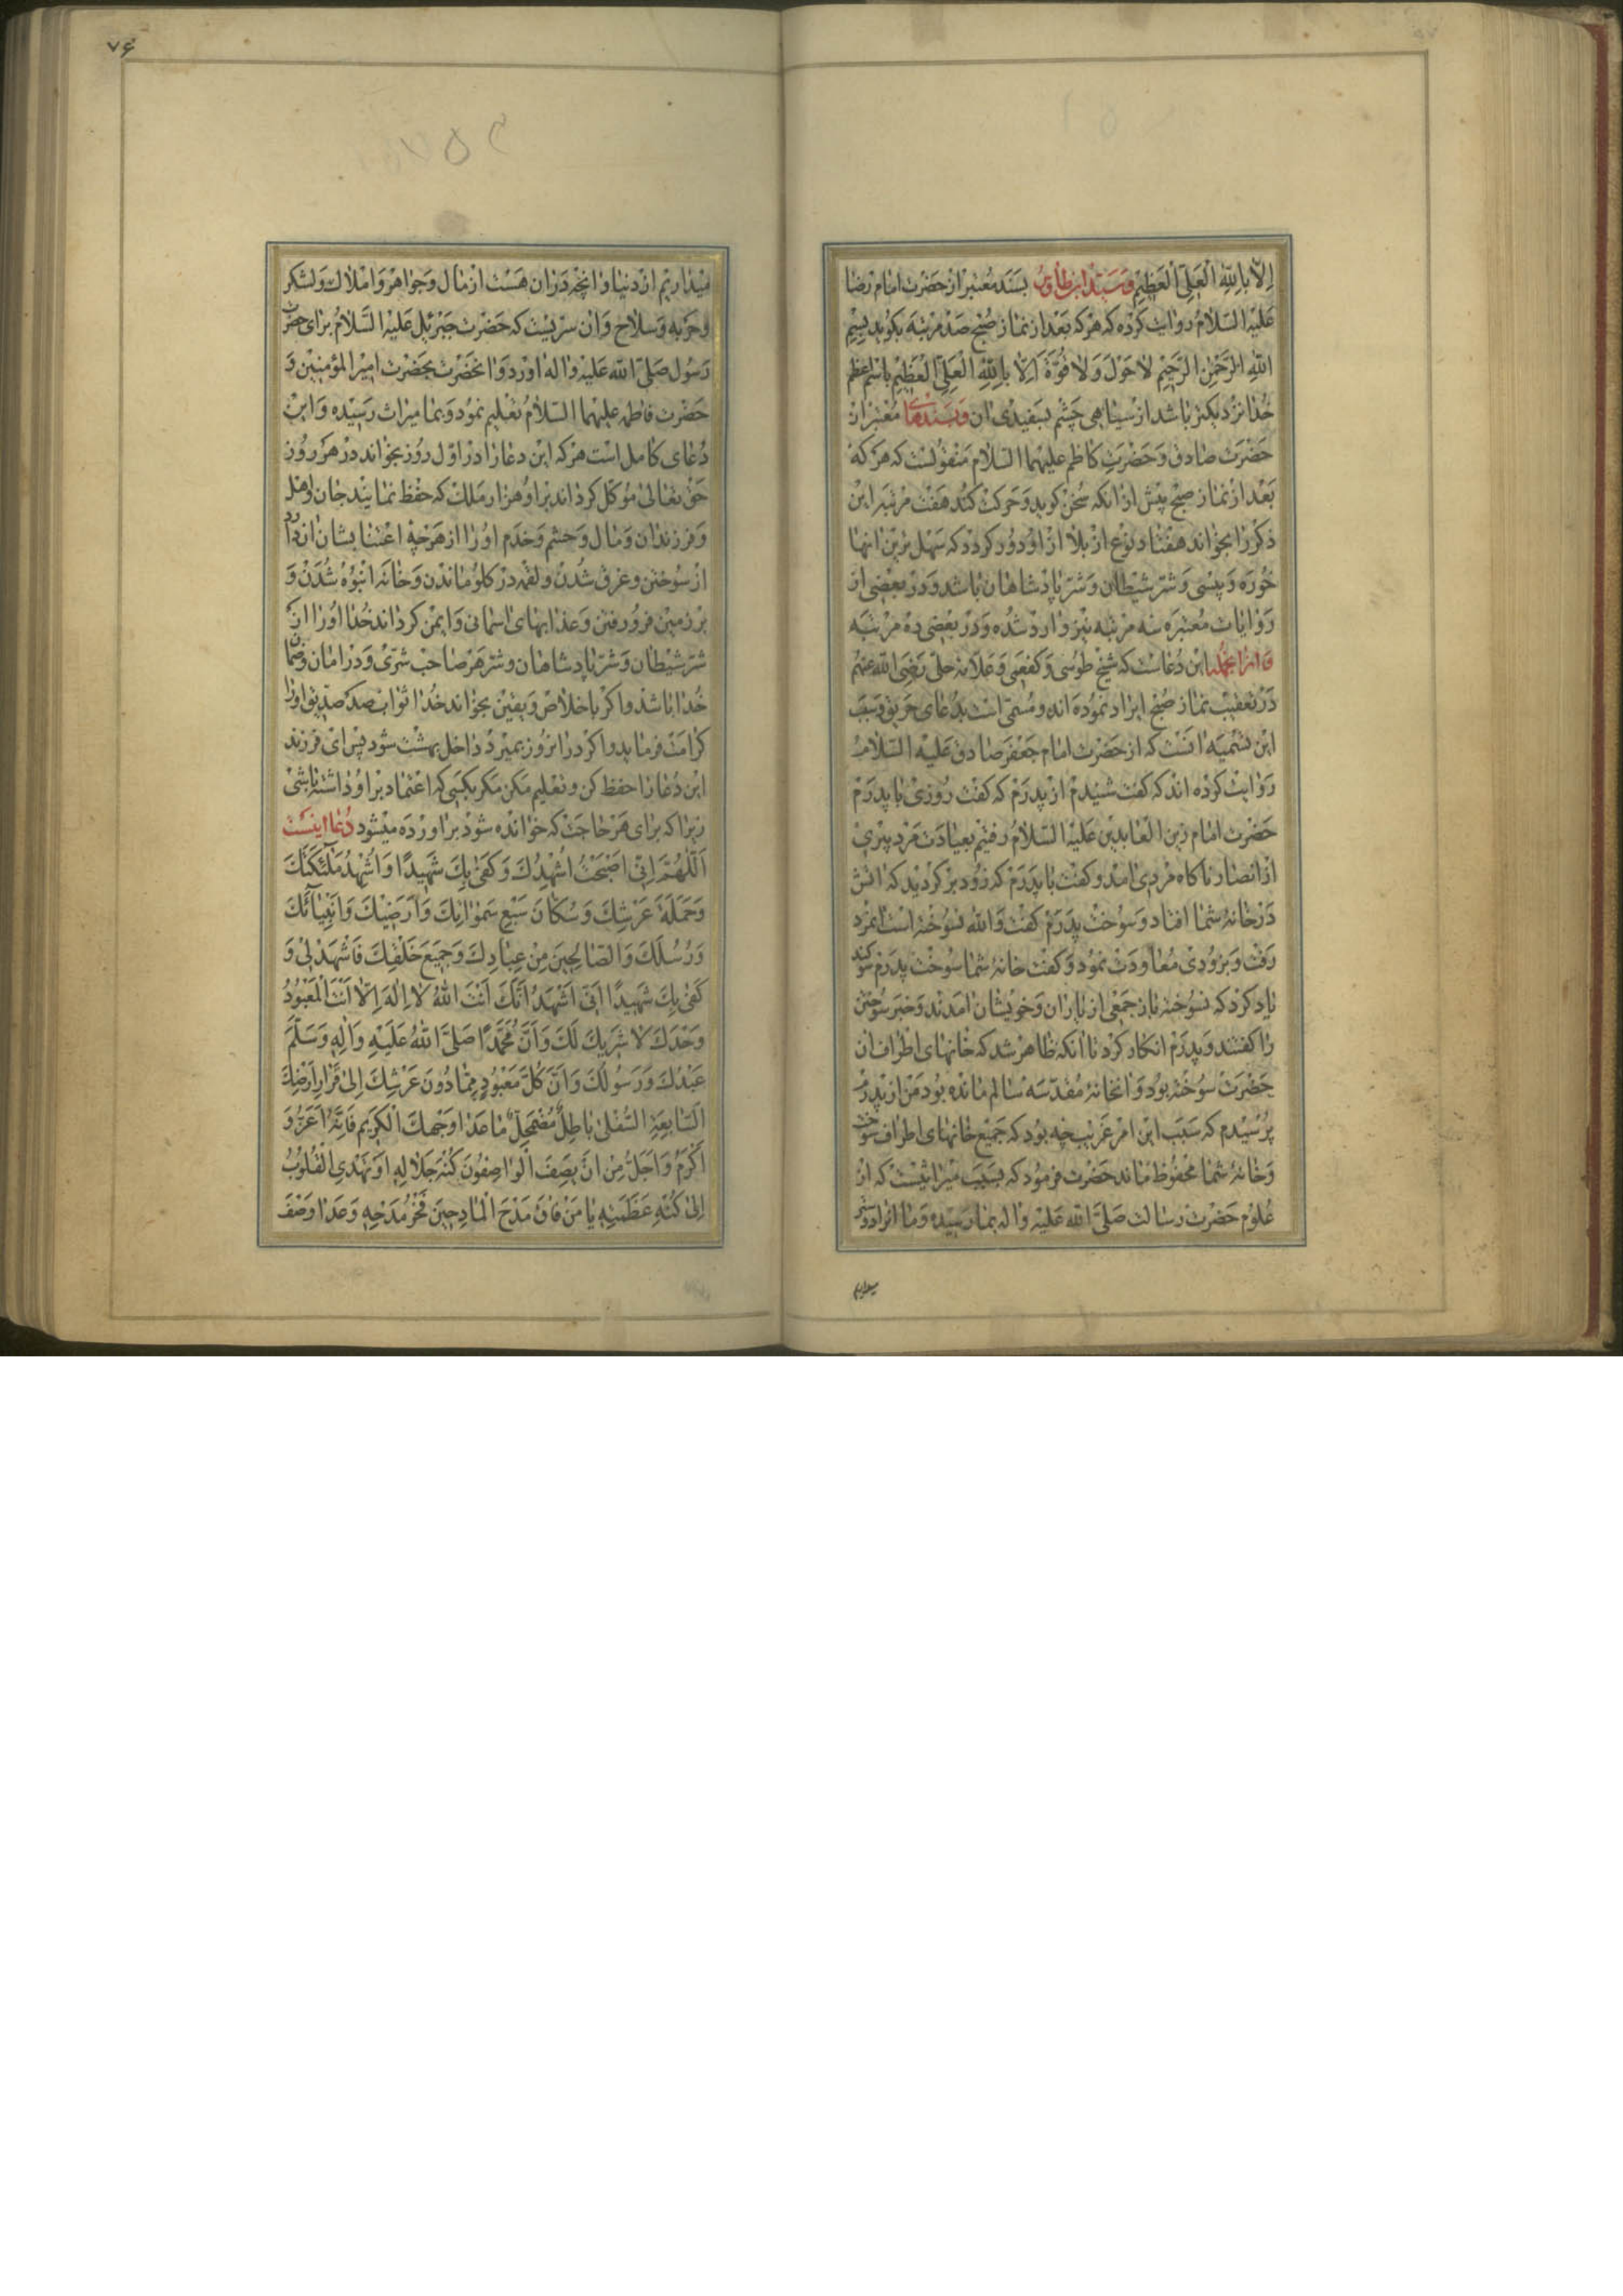 إِلّا بِاللهِ الْعَلِيِّ الْعَظِيمِ وَسَيّد ابن طاوس بسند معتبر از حضرت امام رضا
علیه السلام روایت کرده که هرکه بعد از نماز صبح صد مرتبه بکوید بسم
الله الرحمن الرحیم لا حول ولا قوة الا بالله العلی العظیم باسم اعظم
خدا نزدیکتر باشد از سیاهی چشم بسفیدی ان وبسندهای معتبر از
حضرت صادق وحضرت کاظم علیهما السلام منقولست که هر که
بعد از نماز صبح پیش از انکه سخن کوید وحرکت کند هفت مرتبه این
ذکر را بخواند هفتاد نوع از بلا از او دور کردد که سهل ترین انها
خوره وپیسی وشر شیطان وشر پادشاهان باشد ودر بعضی از
روایات معتبره سه مرتبه نیز وارد شده ودر بعضی ده مرتبه
واز انجمله این دعاست که شیخ طوسی وکفعمی وعلامه حلی رضی الله عنهم
در تعقیب نماز صبح ایراد نموده اند ومسمی است بدعای حریق وسبب
این تسمیه انست که از حضرت امام جعفر صادق علیه السلام
روایت کرده اند که کفت شنیدم از پدرم که کفت روزی با پدرم
حضرت امام زین العابدین علیه السلام رفتیم بعیادت مرد پیری
از انصار ناکاه مردی امد وکفت با پدرم که زود برکردید که اتش
در خانه شما افتاد وسوخت پدرم کفت والله نسوخته است انمرد
رفت وبزودی معاودت نمود وکفت خانه شما سوخت پدرم سوکند
یاد کرد که نسوخته باز جمعی از یاران وخویشان امدند وخبر سوختن
را کفتند وپدرم انکار کرد تا انکه ظاهر شد که خانهای اطراف ان
حضرت سوخته بود وانخانه مقدسه سالم مانده بود من از پدرم
پرسیدم که سبب این امر غریب چه بود که جمیع خانهای اطراف سوخت
وخانه شما محفوظ ماند حضرت فرمود که بسبب میراثیست که از
علوم حضرت رسالت صلی الله علیه واله بما رسیده وما انرا دوستر
میداریم
۷۶
میداریم از دنیا وانچه در ان هست از مال وجواهر واملاک ولشکر
وحربه وسلاح وان سریست که حضرت جبرئیل علیه السلام برای حضرت
رسول صلی الله علیه واله اورد وانحضرت بحضرت امیر المؤمنین و
حضرت فاطمه علیهما السلام تعلیم نمود وبما میراث رسیده واین
دعای کامل است هرکه این دعا را در اول روز بخواند در هر روز
حق تعالی موکل کرداند بر او هزار ملک که حفظ نمایند جان واهل
وفرزندان ومال وحشم وخدم او را از هرچه اعتنا بشان ان دارد
از سوختن وغرق شدن ولقمه در کلو ماندن وخانه انبوه شدن و
برزمین فرو رفتن وعذابهای اسمانی وایمن کرداند خدا او را از
شر شیطان وشر پادشاهان وشر هر صاحب شری ودر امان وضمان
خدا باشد واکر باخلاص ویقین بخواند خدا ثواب صد صدیق او را
کرامت فرماید واکر در انروز بمیرد داخل بهشت شود پس ای فرزند
این دعا را حفظ کن وتعلیم مکن مکر بکسی که اعتماد بر او داشته باشی
زیرا که برای هر حاجت که خوانده شود براورده میشود دعا اینست
اَللّٰهُمَّ اِنّی اَصْبَحْتُ اُشْهِدُكَ وَكَفیٰ بِكَ شَهیدًا وَاُشْهِدُ مَلٰٓئِكَتَكَ
وَحَمَلَةَ عَرْشِكَ وَسُكّانَ سَبْعِ سَمٰوٰاتِكَ وَاَرَضیكَ وَاَنْبِیآئَكَ
وَرُسُلَكَ وَالصّالِحینَ مِنْ عِبادِكَ وَجَمیعَ خَلْقِكَ فَاشْهَدْ لی وَ
كَفیٰ بِكَ شَهیدًا اَنّی اَشْهَدُ اَنَّكَ اَنْتَ اللهُ لا اِلٰهَ اِلّا اَنْتَ الْمَعْبُودُ
وَحْدَكَ لا شَریكَ لَكَ وَاَنَّ مُحَمَّدًا صَلَّی اللهُ عَلَیْهِ وَاٰلِهِ وَسَلَّمَ
عَبْدُكَ وَرَسُولُكَ وَاَنَّ كُلَّ مَعْبُودٍ مِمّا دُونَ عَرْشِكَ اِلیٰ قَرارِ اَرْضِكَ
السّابِعَةِ السُّفْلیٰ باطِلٌ مُضْمَحِلٌّ ما عَدا وَجْهِكَ الْكَریمِ فَاِنَّهُ اَعَزُّ وَ
اَكْرَمُ وَاَجَلُّ مِنْ اَنْ یَصِفَ الْواصِفُونَ كُنْهَ جَلالِهِ اَوْ تَهْتَدِیَ الْقُلُوبُ
اِلیٰ كُنْهِ عَظَمَتِهِ یا مَنْ فاقَ مَدْحَ الْمادِحینَ فَخْرُ مَدْحِهِ وَعَدا وَصْفَ